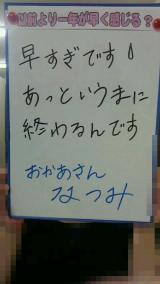 以前より一年が早く感じる？
早すぎです！
あっというまに
終わるんです
おかあさん
なつみ